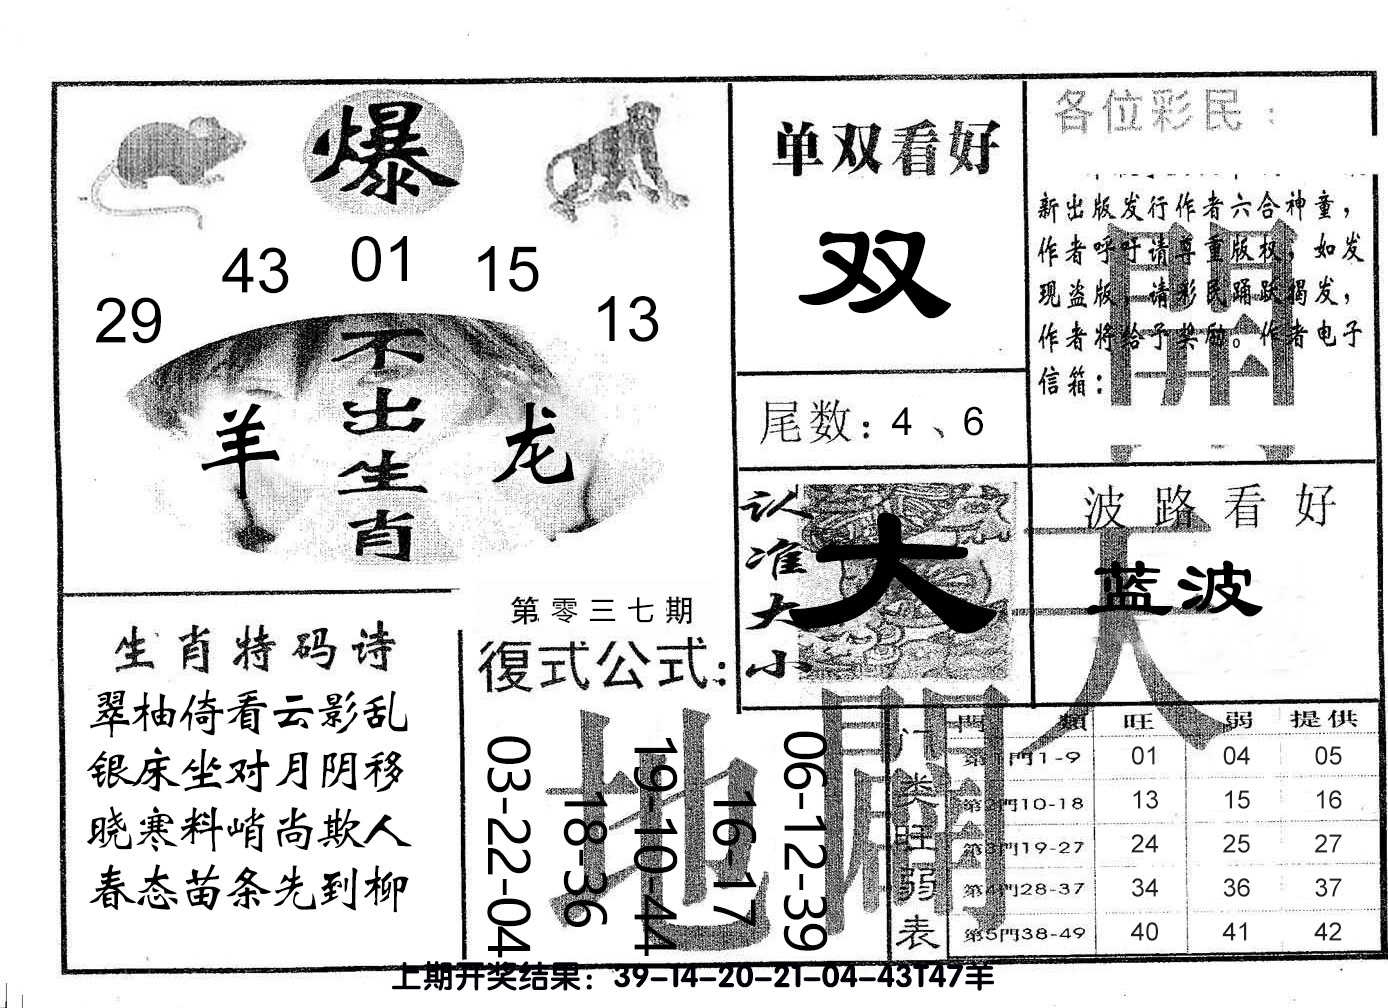 爆
43 01 15
29 13
不出生肖
羊 龙
单双看好
双
尾数：4、6
各位彩民：
新出版发行作者六合神童，
作者呼吁请尊重版权，如发
现盗版，请彩民踊跃揭发，
作者将给予奖励。作者电子
信箱：
認准大小
大
波路看好
蓝波
天
開
地
開
生肖特码诗
翠柚倚看云影乱
银床坐对月阴移
晓寒料峭尚欺人
春态苗条先到柳
第零三七期
復式公式：
03-22-04
18-36
19-10-44
16-17
06-12-39
门类旺弱表
門 類 旺 弱 提供
第1門1-9 01 04 05
第2門10-18 13 15 16
第3門19-27 24 25 27
第4門28-37 34 36 37
第5門38-49 40 41 42
上期开奖结果：39-14-20-21-04-43T47羊